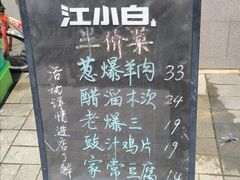 江小白
半价菜
葱爆羊肉 33
醋溜木次 24
老爆三 19
豉汁鸡片 19
家常豆腐 14
活动详情进店了解